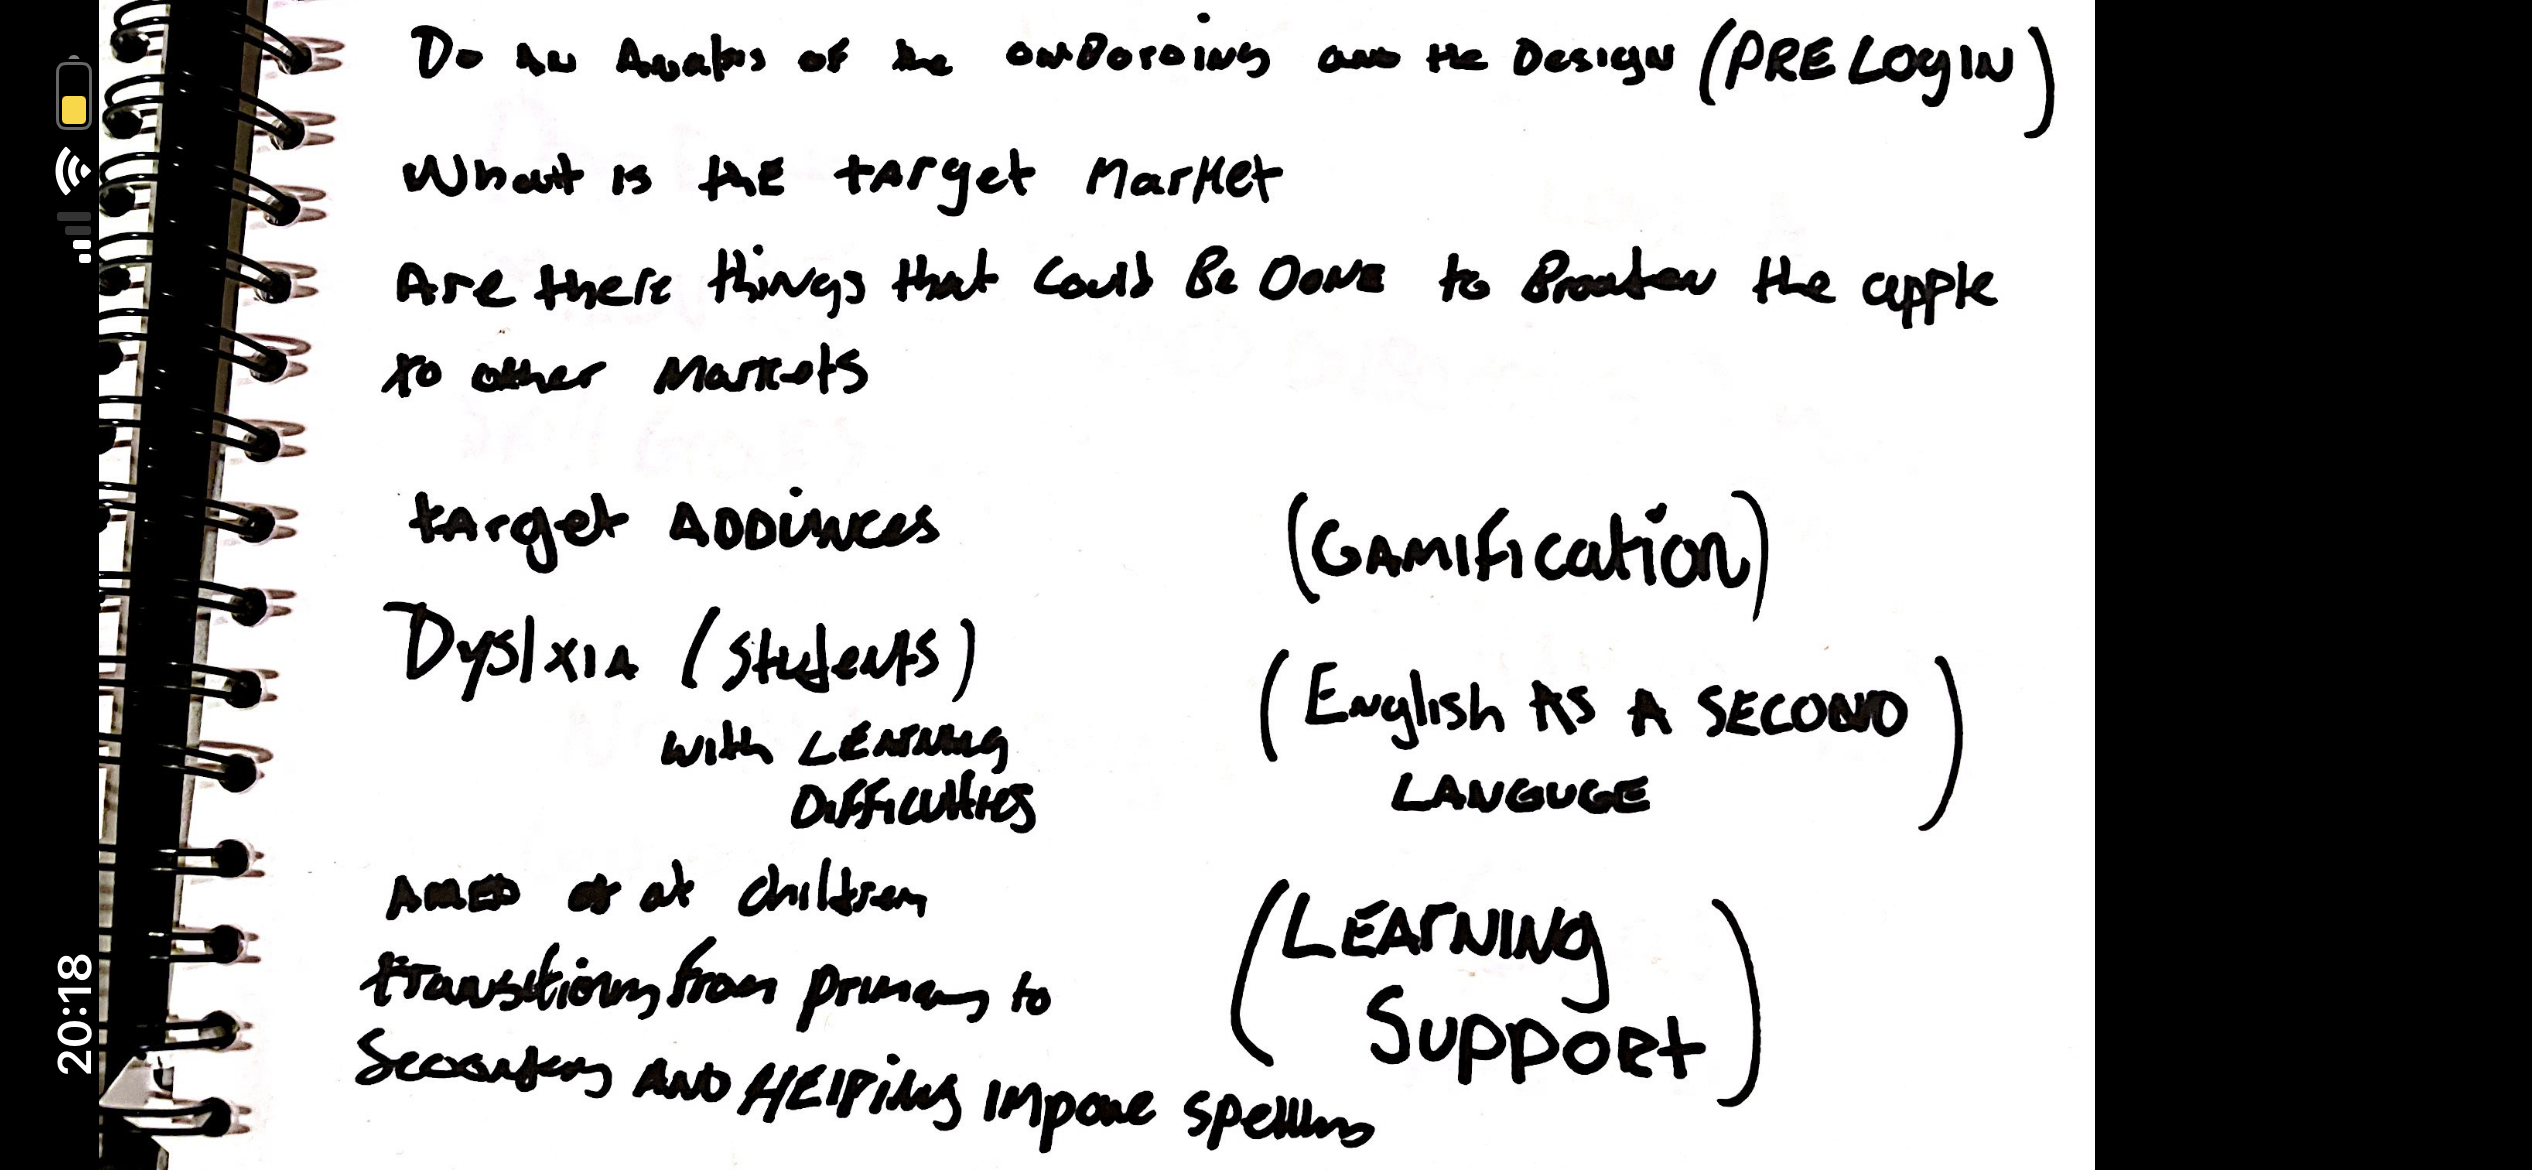 Do an Analysis of the onBording and the Design (PRE LOgIN)
What is the tArget Market
Are there things that Could Be DONE to Broaden the apple
to other Markets
tArget ADDiNCES
(GAMIfication)
DyslxIA (students)
with LEArNING
DifficultIES
(English AS A SECOND
LANGUGE)
AMED at children
transitioning from primary to
Secondary AND HElPiNg Improve spelling
(LEArNINg
SuppORt)
20:18